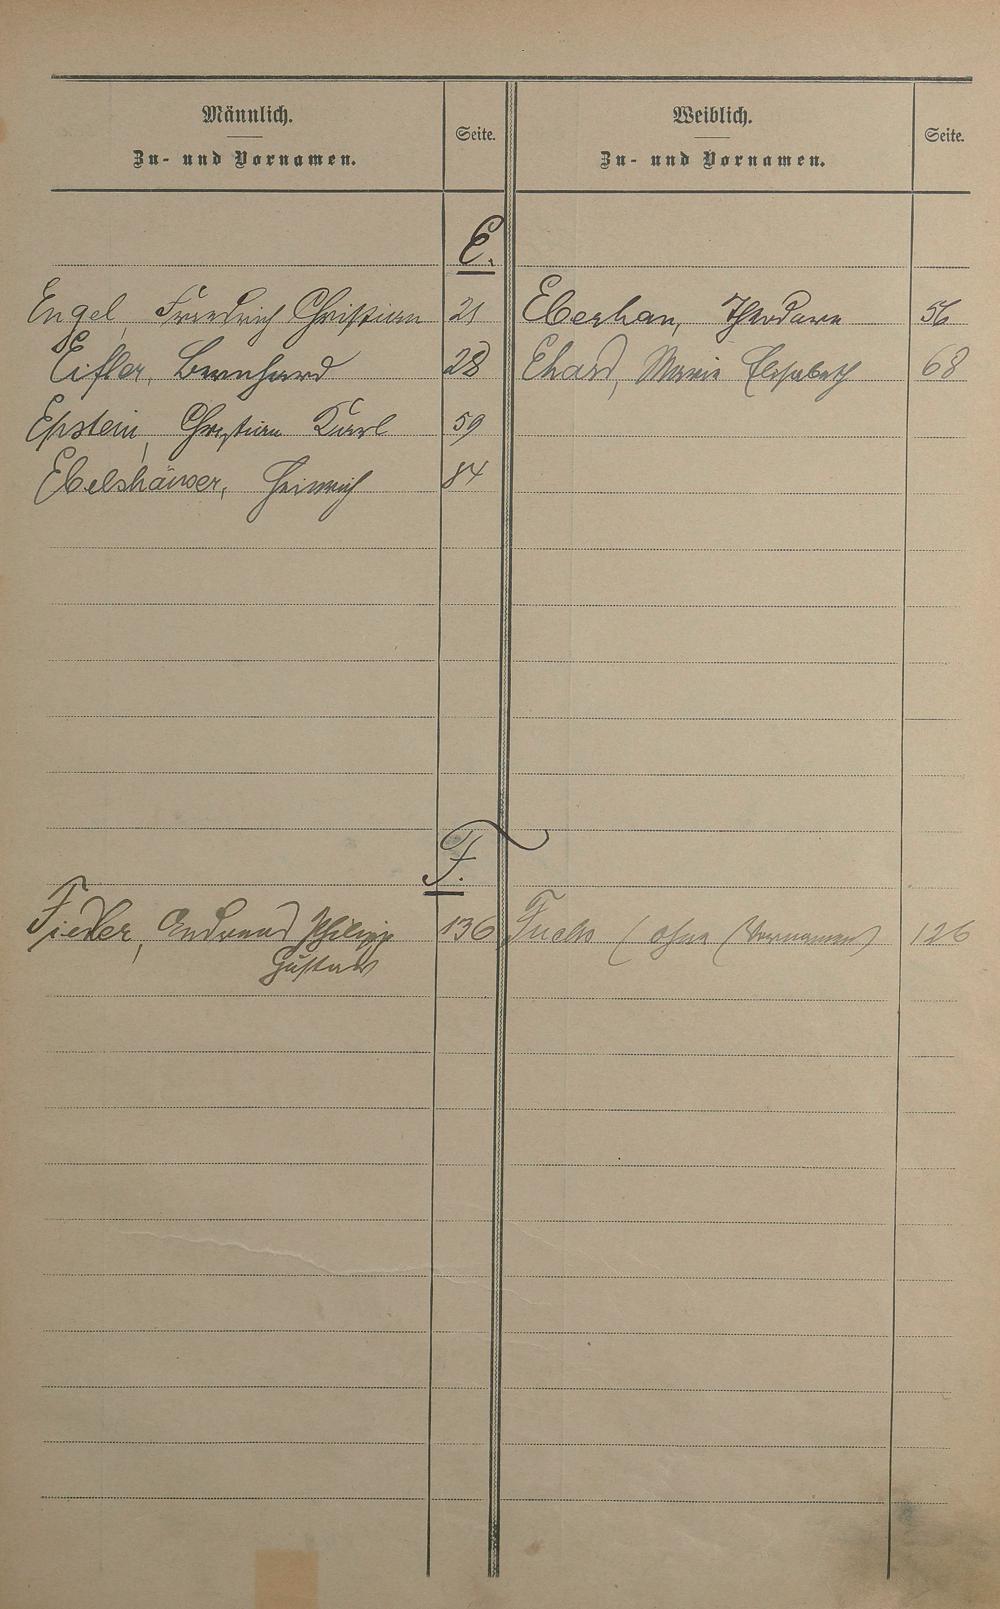 Männlich.
Zu- und Vornamen.
Seite.
Weiblich.
Zu- und Vornamen.
Seite.
E.
Engel, Friedrich Christian 21 Eberhan, 56
Eifler, Bernhard 28 Ehard, Marie Elisabeth 68
Epstein, Christian Karl 59
Ebelshäuser, Heinrich 84
F.
Fiedler, Andreas Philipp 136 Fuchs (ohne Vornamen) 126
Gustav